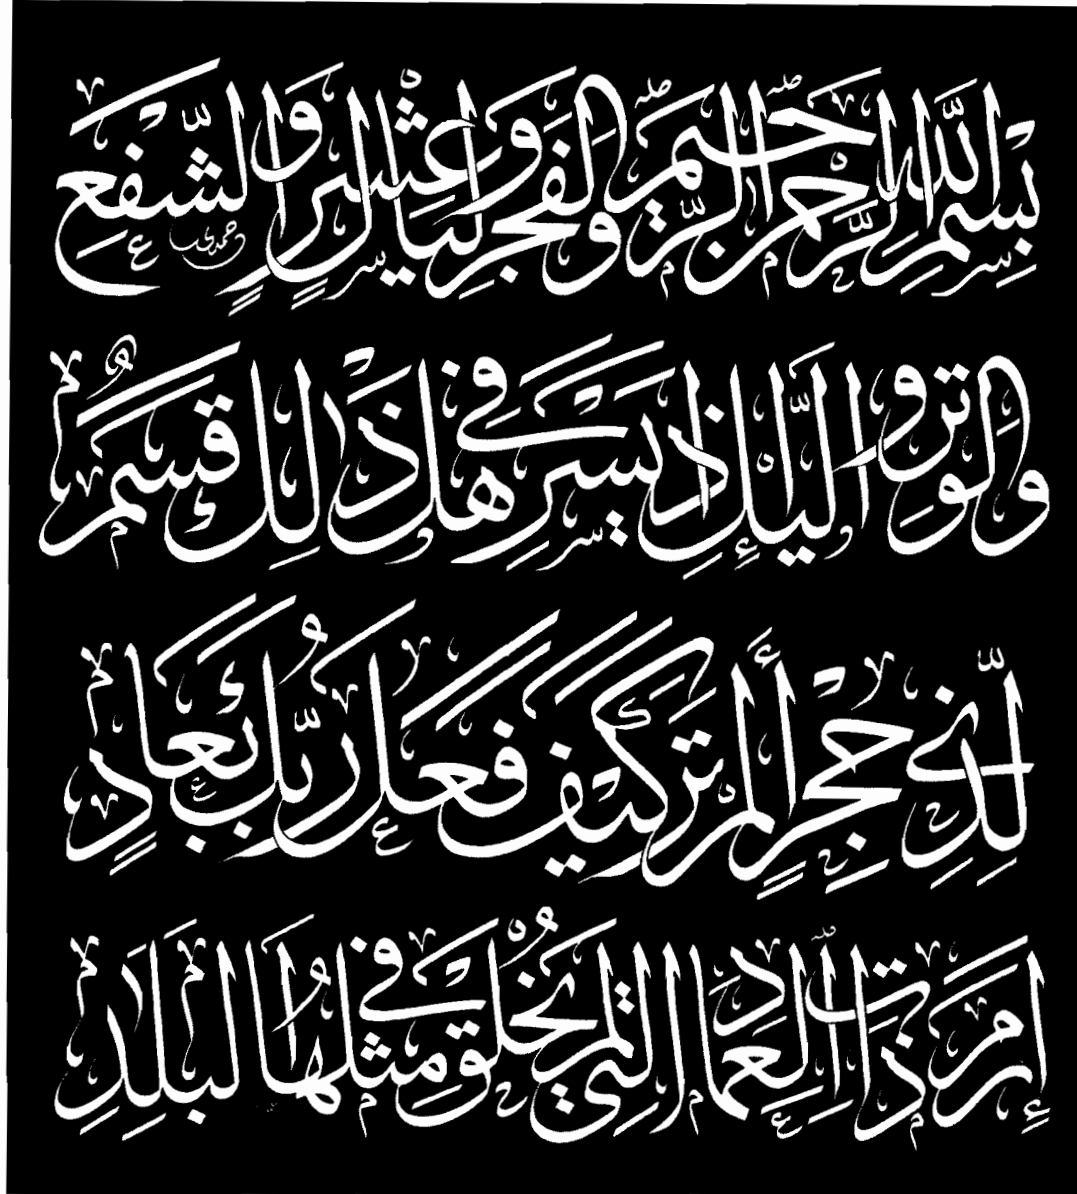 بِسْمِ اللَّهِ الرَّحْمَٰنِ الرَّحِيمِ وَالْفَجْرِ وَلَيَالٍ عَشْرٍ وَالشَّفْعِ
وَالْوَتْرِ وَاللَّيْلِ إِذَا يَسْرِ هَلْ فِي ذَٰلِكَ قَسَمٌ
لِذِي حِجْرٍ أَلَمْ تَرَ كَيْفَ فَعَلَ رَبُّكَ بِعَادٍ
إِرَمَ ذَاتِ الْعِمَادِ الَّتِي لَمْ يُخْلَقْ مِثْلُهَا فِي الْبِلَادِ